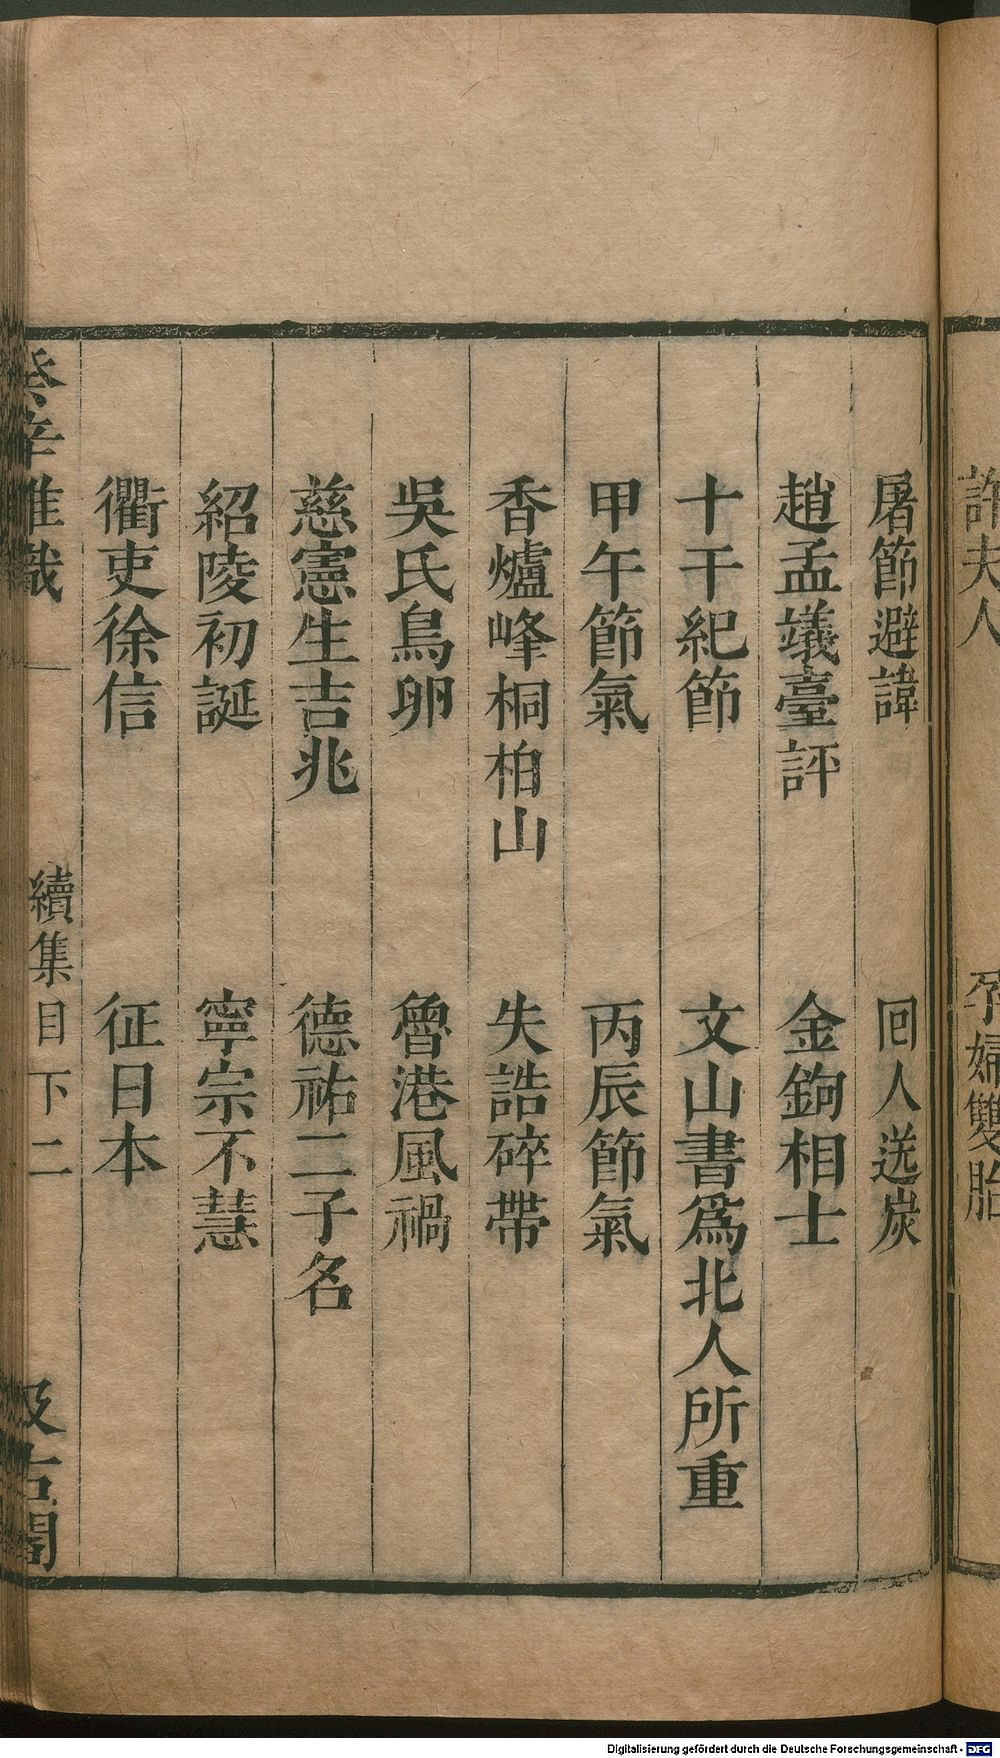 許夫人
孕婦雙胎
屠節避諱
回人送炭
趙孟蟻臺評
金鉤相士
十干紀節
文山書爲北人所重
甲午節氣
丙辰節氣
香爐峰桐柏山
失誥碎帶
吳氏鳥卵
魯港風禍
慈憲生吉兆
德祐二子名
紹陵初誕
寧宗不慧
衢吏徐信
征日本
癸辛雜識
續集目下二
汲古閣
Digitalisierung gefördert durch die Deutsche Forschungsgemeinschaft - DFG